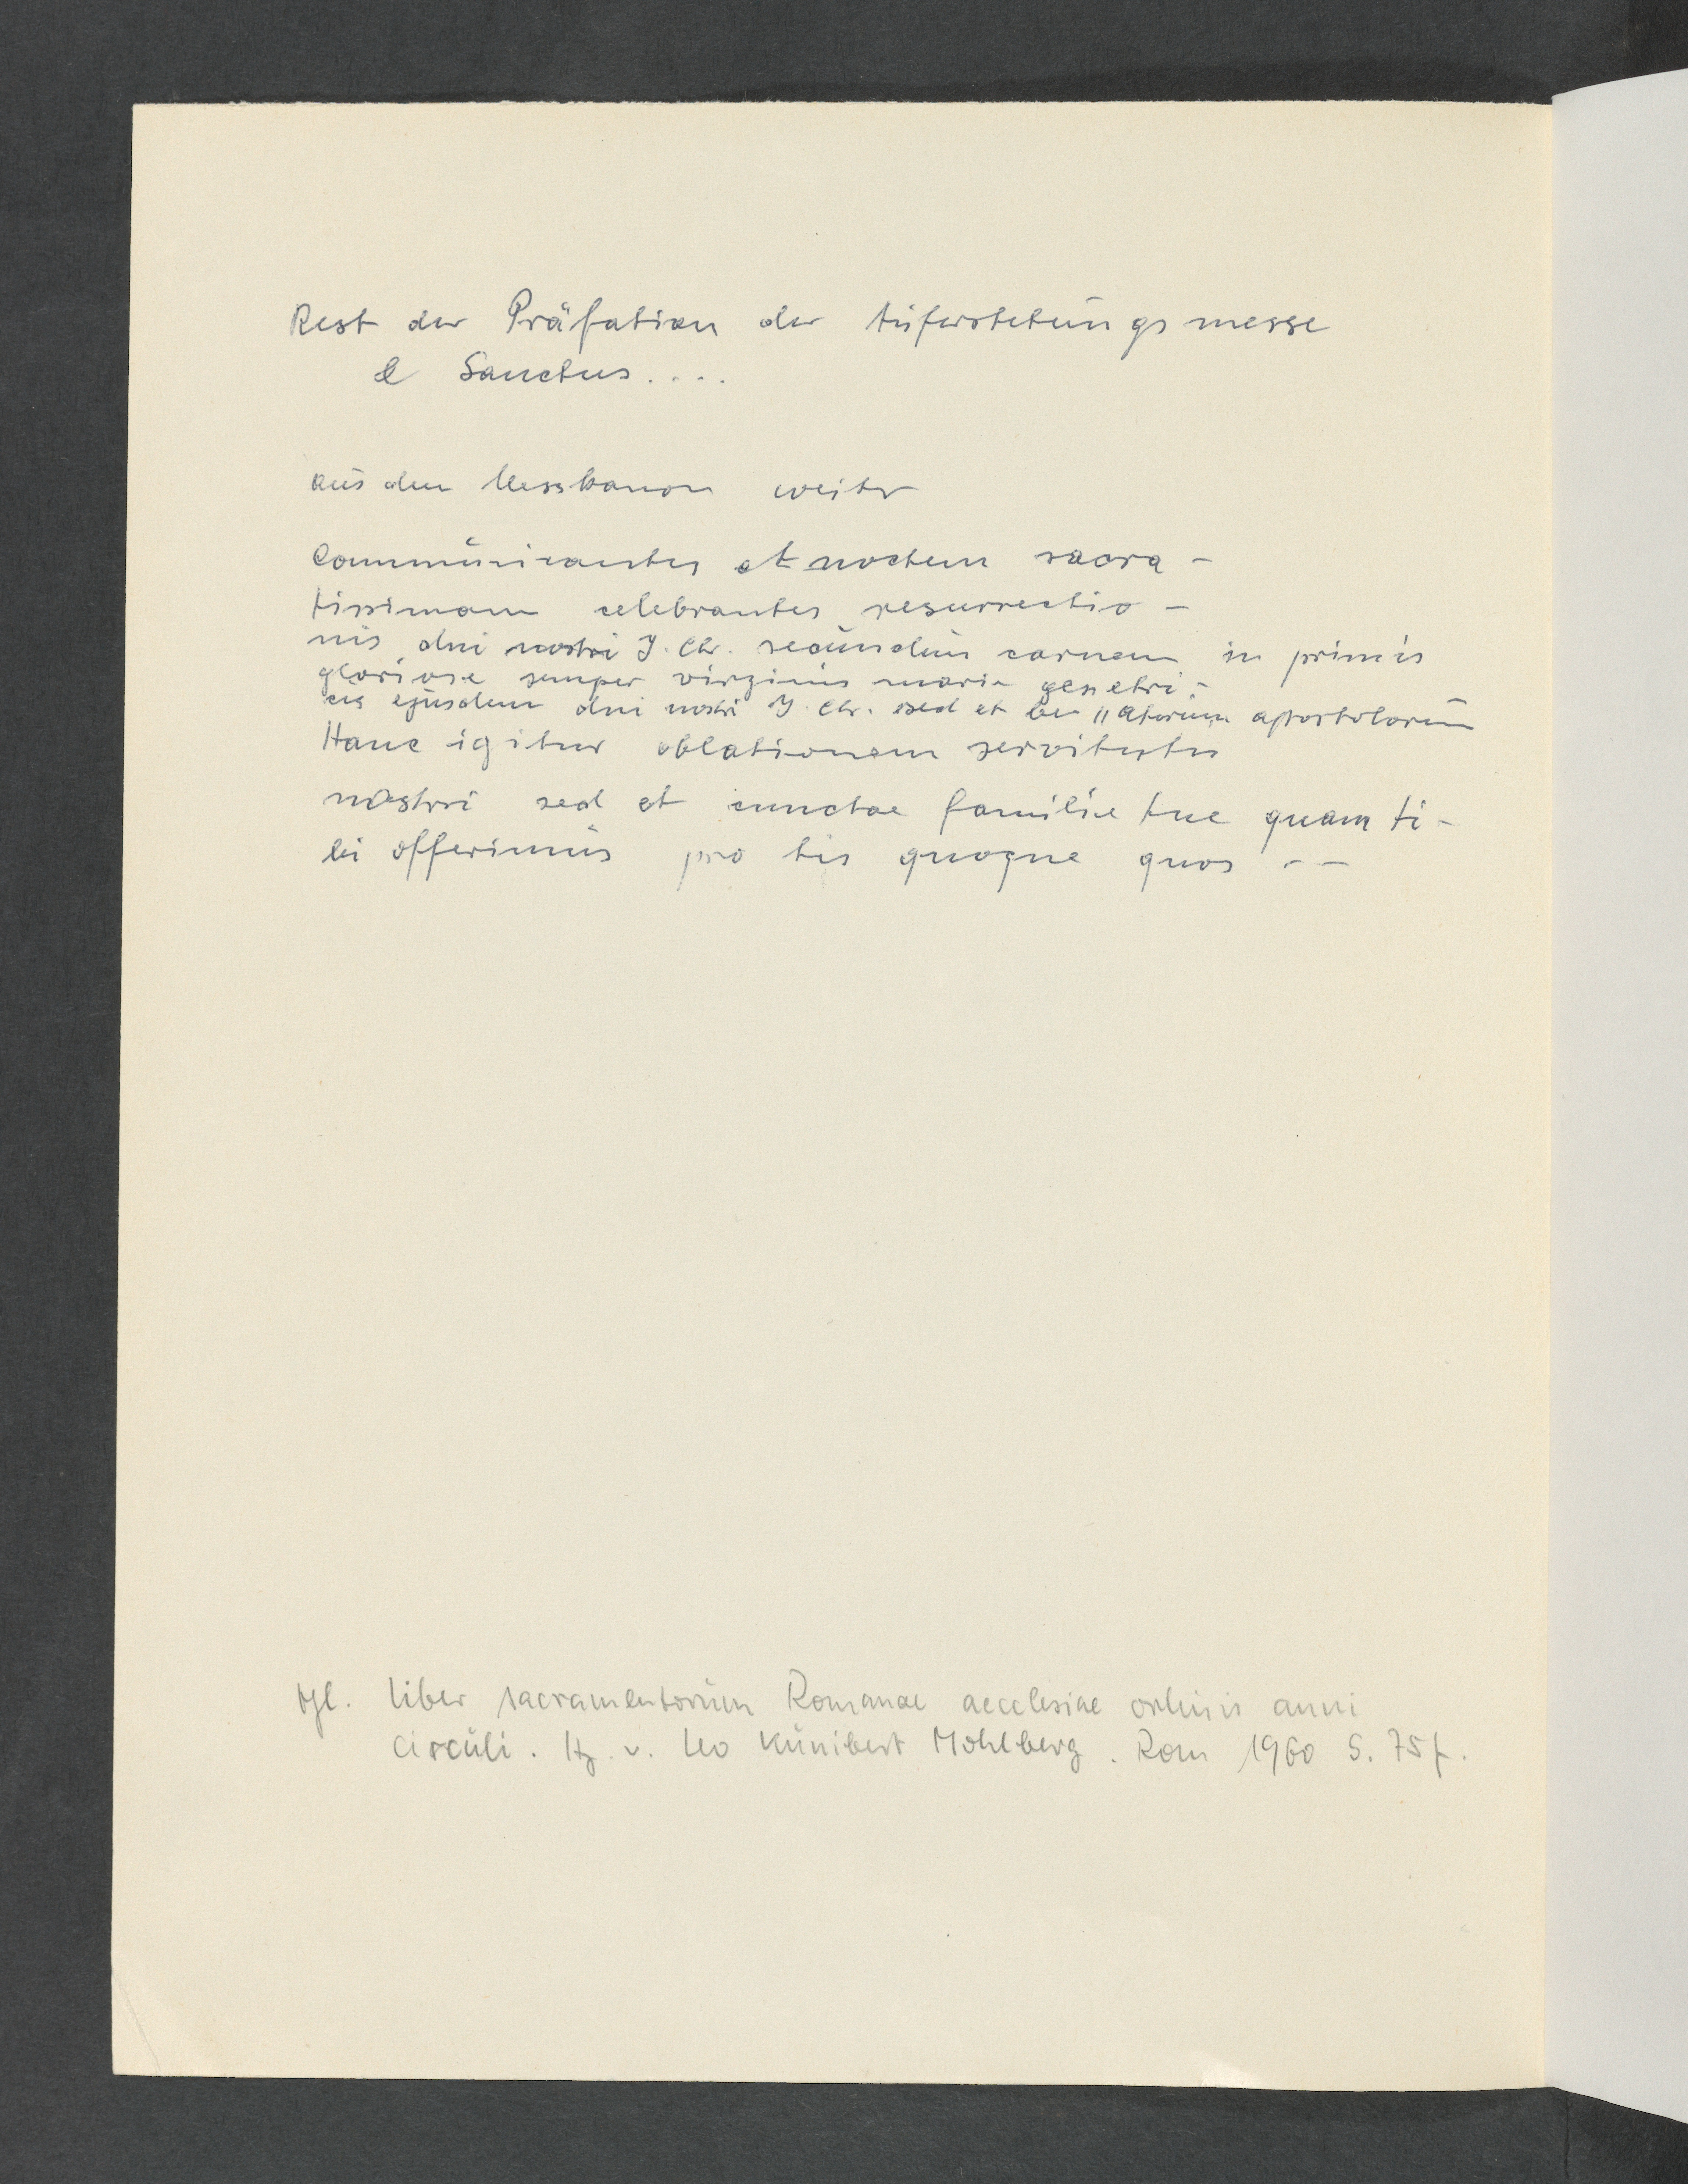 Rest der Präfation der Auferstehungsmesse
& Sanctus....
aus dem Messkanon weiter
Communicantes et noctem sacra-
tissimam celebrantes resurrectio-
nis dni nostri J. Chr. secundum carnem in primis
gloriose semper virginis marie genetri-
cis ejusdem dni nostri J. Chr. sed et be||atorum apostolorum
Hanc igitur oblationem servitutis
nostri sed et cunctae familie tue quam ti-
bi offerimus pro his quoque quos --
Vgl. Liber sacramentorum Romanae aecclesiae ordinis anni
circuli. Hg. v. Leo Kunibert Mohlberg. Rom 1960 S. 75f.